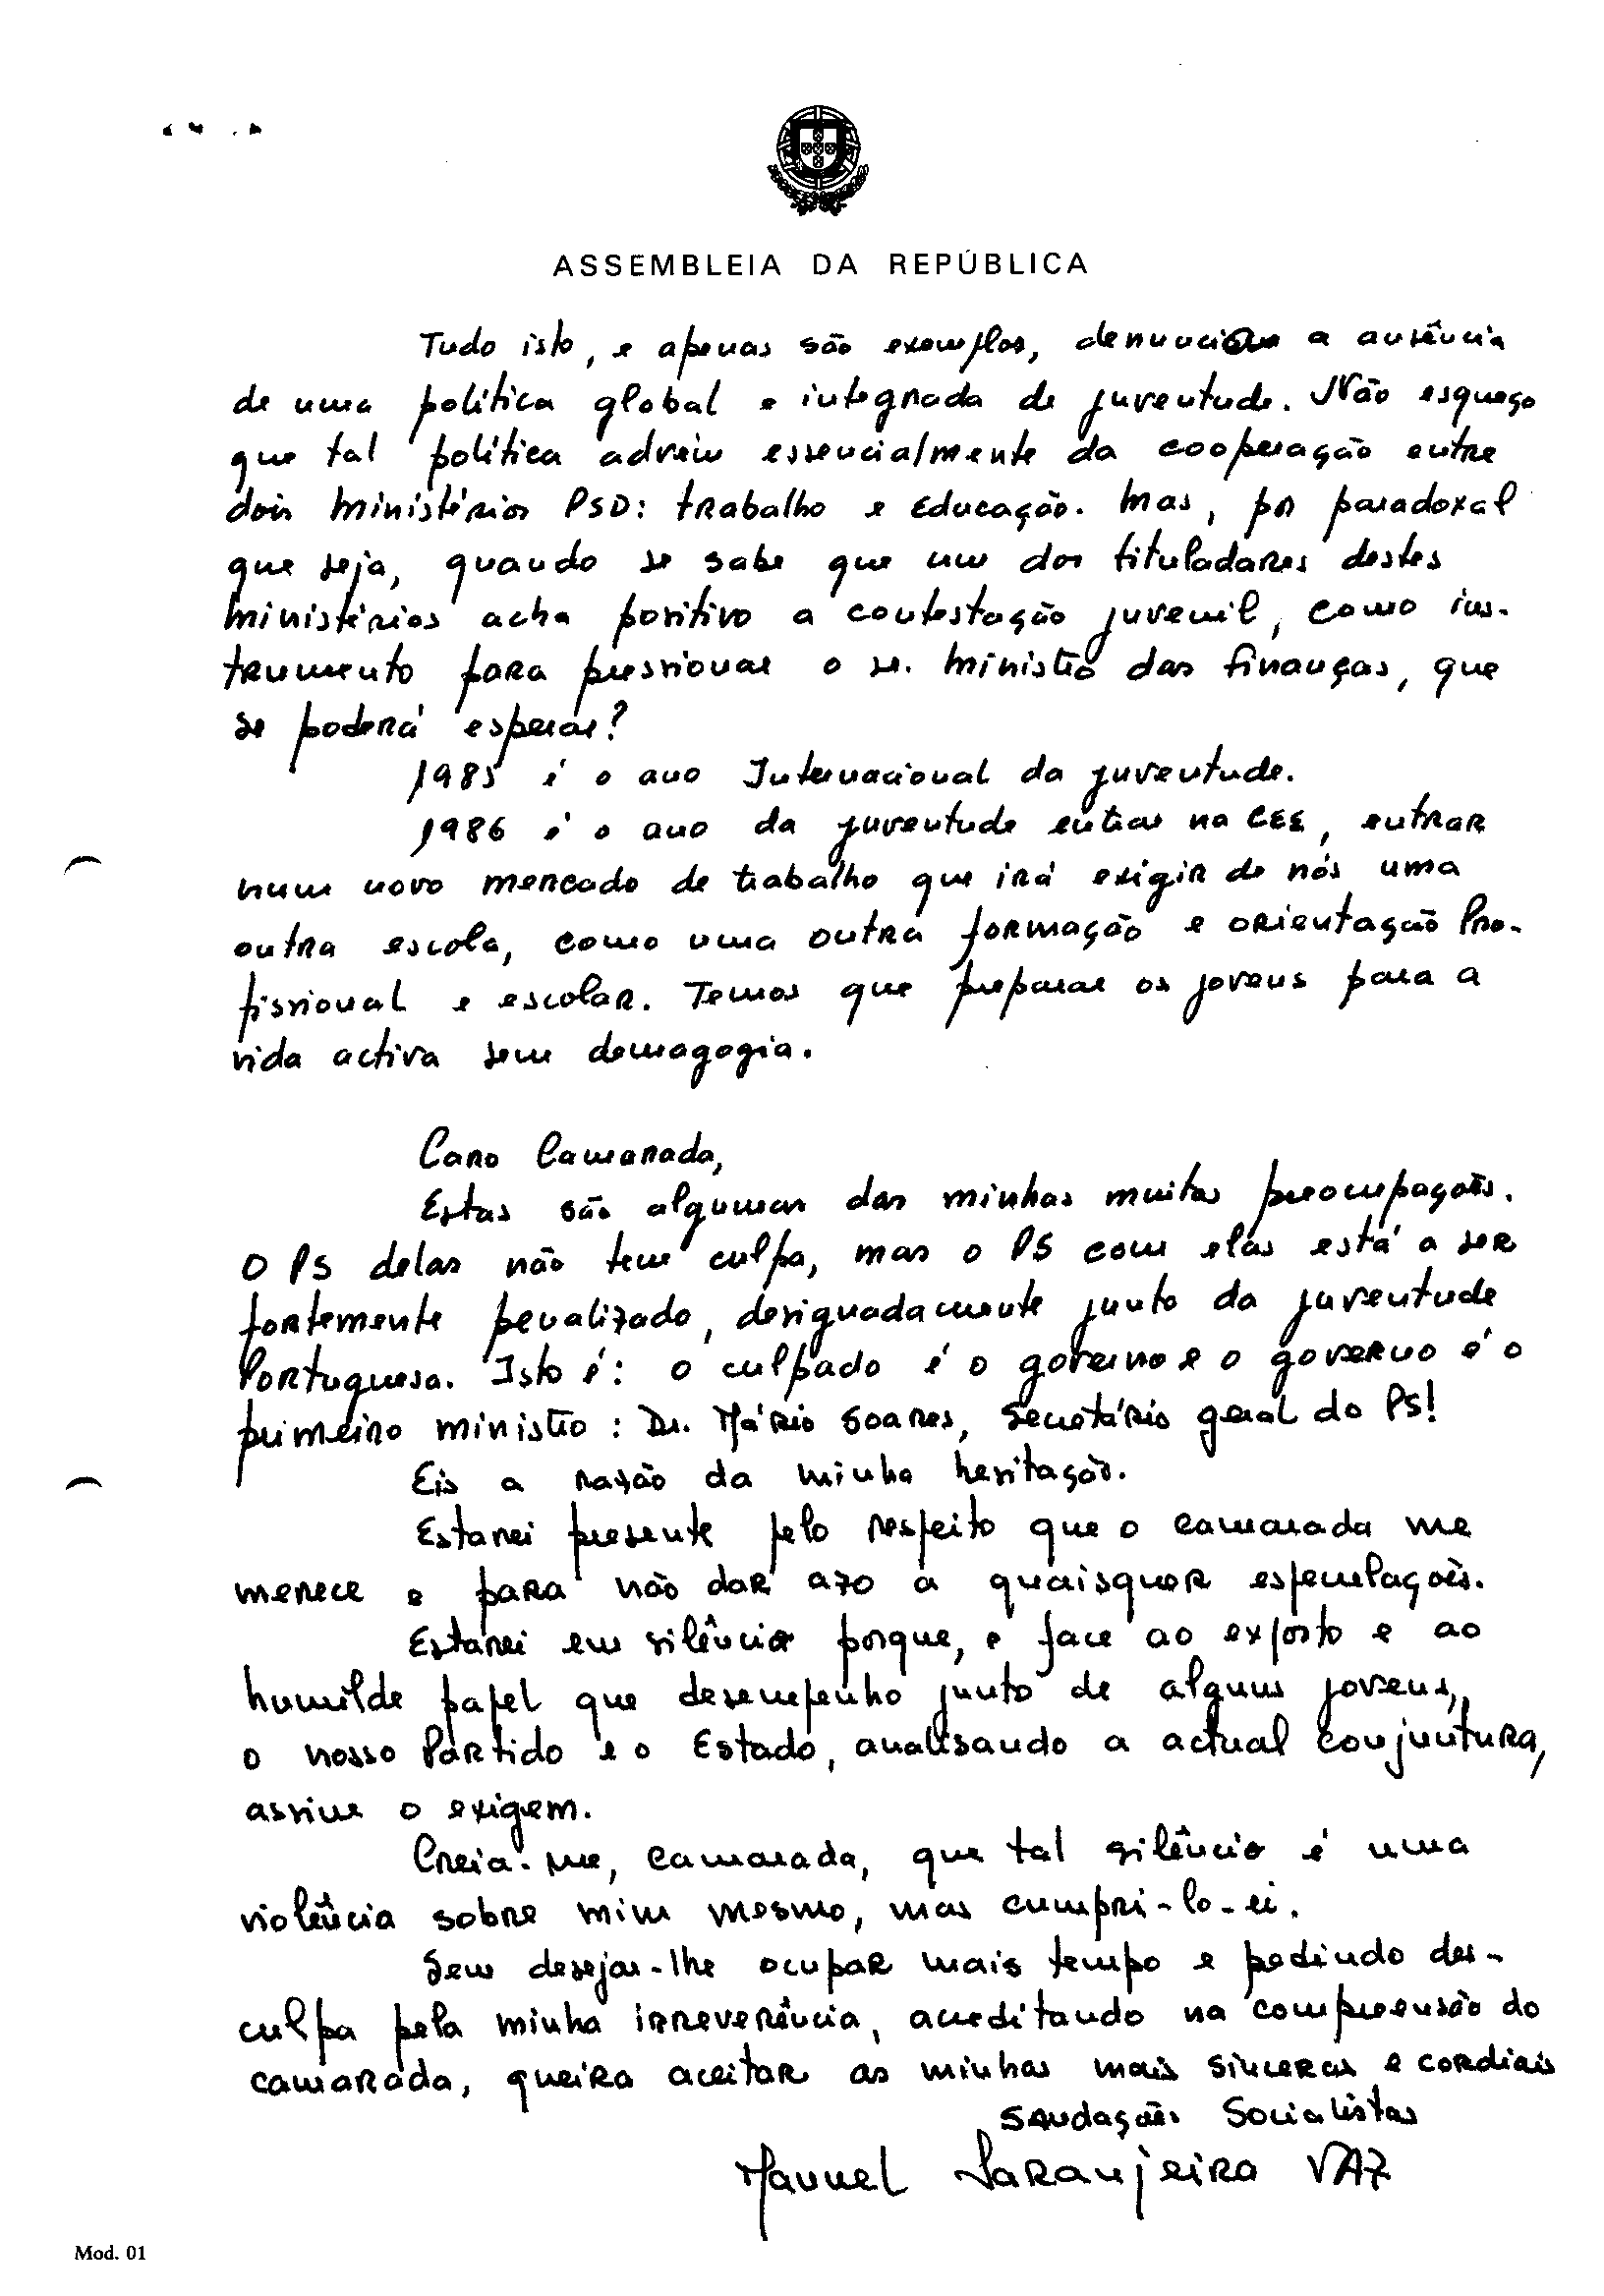 ASSEMBLEIA DA REPÚBLICA
Tudo isto, e apenas são exemplos, denunciam a ausência
de uma política global e integrada de juventude. Não esqueço
que tal política adveio essencialmente da cooperação entre
dois ministérios PSD: trabalho e Educação. Mas, por paradoxal
que seja, quando se sabe que um dos tituladares destes
ministérios acha positivo a contestação juvenil, como ins-
trumento para pressionar o sr. ministro das finanças, que
se poderá esperar?
1985 é o ano Internacional da juventude.
1986 é o ano da juventude entrar na CEE, entrar
num novo mercado de trabalho que irá exigir de nós uma
outra escola, como uma outra formação e orientação Pro-
fissional e escolar. Temos que preparar os jovens para a
vida activa sem demagogia.
Caro Camarada,
Estas são algumas das minhas muitas preocupações.
O PS delas não tem culpa, mas o PS com elas está a ser
fortemente penalizado, designadamente junto da juventude
Portuguesa. Isto é: o culpado é o governo e o governo é o
primeiro ministro: Dr. Mário Soares, Secretário geral do PS!
Eis a razão da minha hesitação.
Estarei presente pelo respeito que o camarada me
merece e para não dar azo a quaisquer especulações.
Estarei em silêncio porque, e face ao exposto e ao
humilde papel que desempenho junto de alguns jovens,
o nosso Partido e o Estado, analisando a actual conjuntura,
assim o exigem.
Creia-me, camarada, que tal silêncio é uma
violência sobre mim mesmo, mas cumpri-lo-ei.
Sem desejar-lhe ocupar mais tempo e pedindo des-
culpa pela minha irreverência, acreditando na compreensão do
camarada, queira aceitar as minhas mais sinceras e cordiais
Saudações Socialistas
Manuel Laranjeira VAZ
Mod. 01